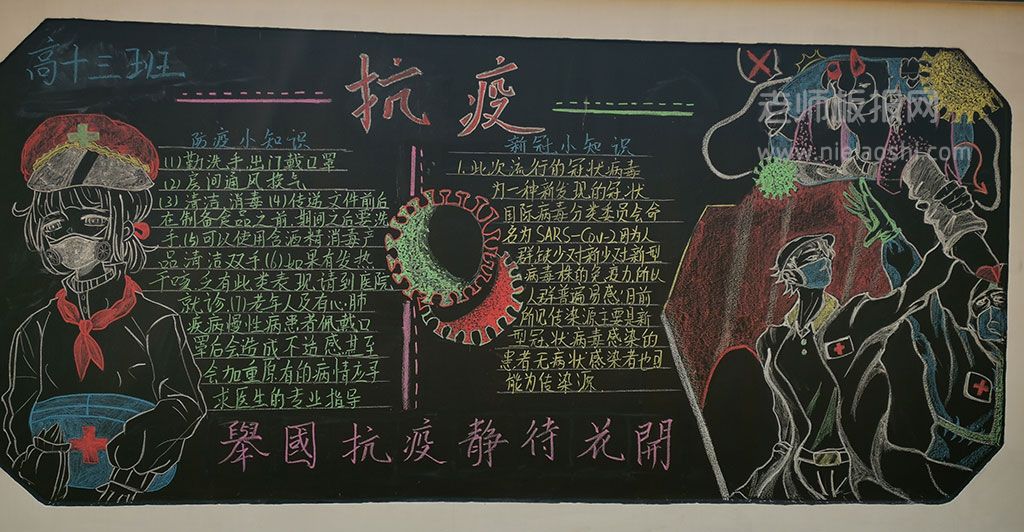 高十三班
抗疫
防疫小知识
(1)勤洗手出门戴口罩
(2)房间通风换气
(3)清洁消毒(4)传递文件前后
在制备食品之前,期间之后要洗
手(5)可以使用含酒精消毒产
品清洁双手(6)如果有发热
干咳乏有此类表现,请到医院
就诊(7)老年人及有心肺
疾病慢性病患者佩戴口
罩后会造成不适感甚至
会加重原有的病情应寻
求医生的专业指导
新冠小知识
1.此次流行的冠状病毒
为一种新发现的冠状
国际病毒分类委员会命
名为SARS-Cov-2因为人
群缺少对新少对新型
病毒株的免疫力所以
人群普遍易感,目前
所见传染源主要是新
型冠状病毒感染的
患者无病状感染者也可
能为传染源
舉國抗疫靜待花開
老师板报网
www.nielaoshi.com